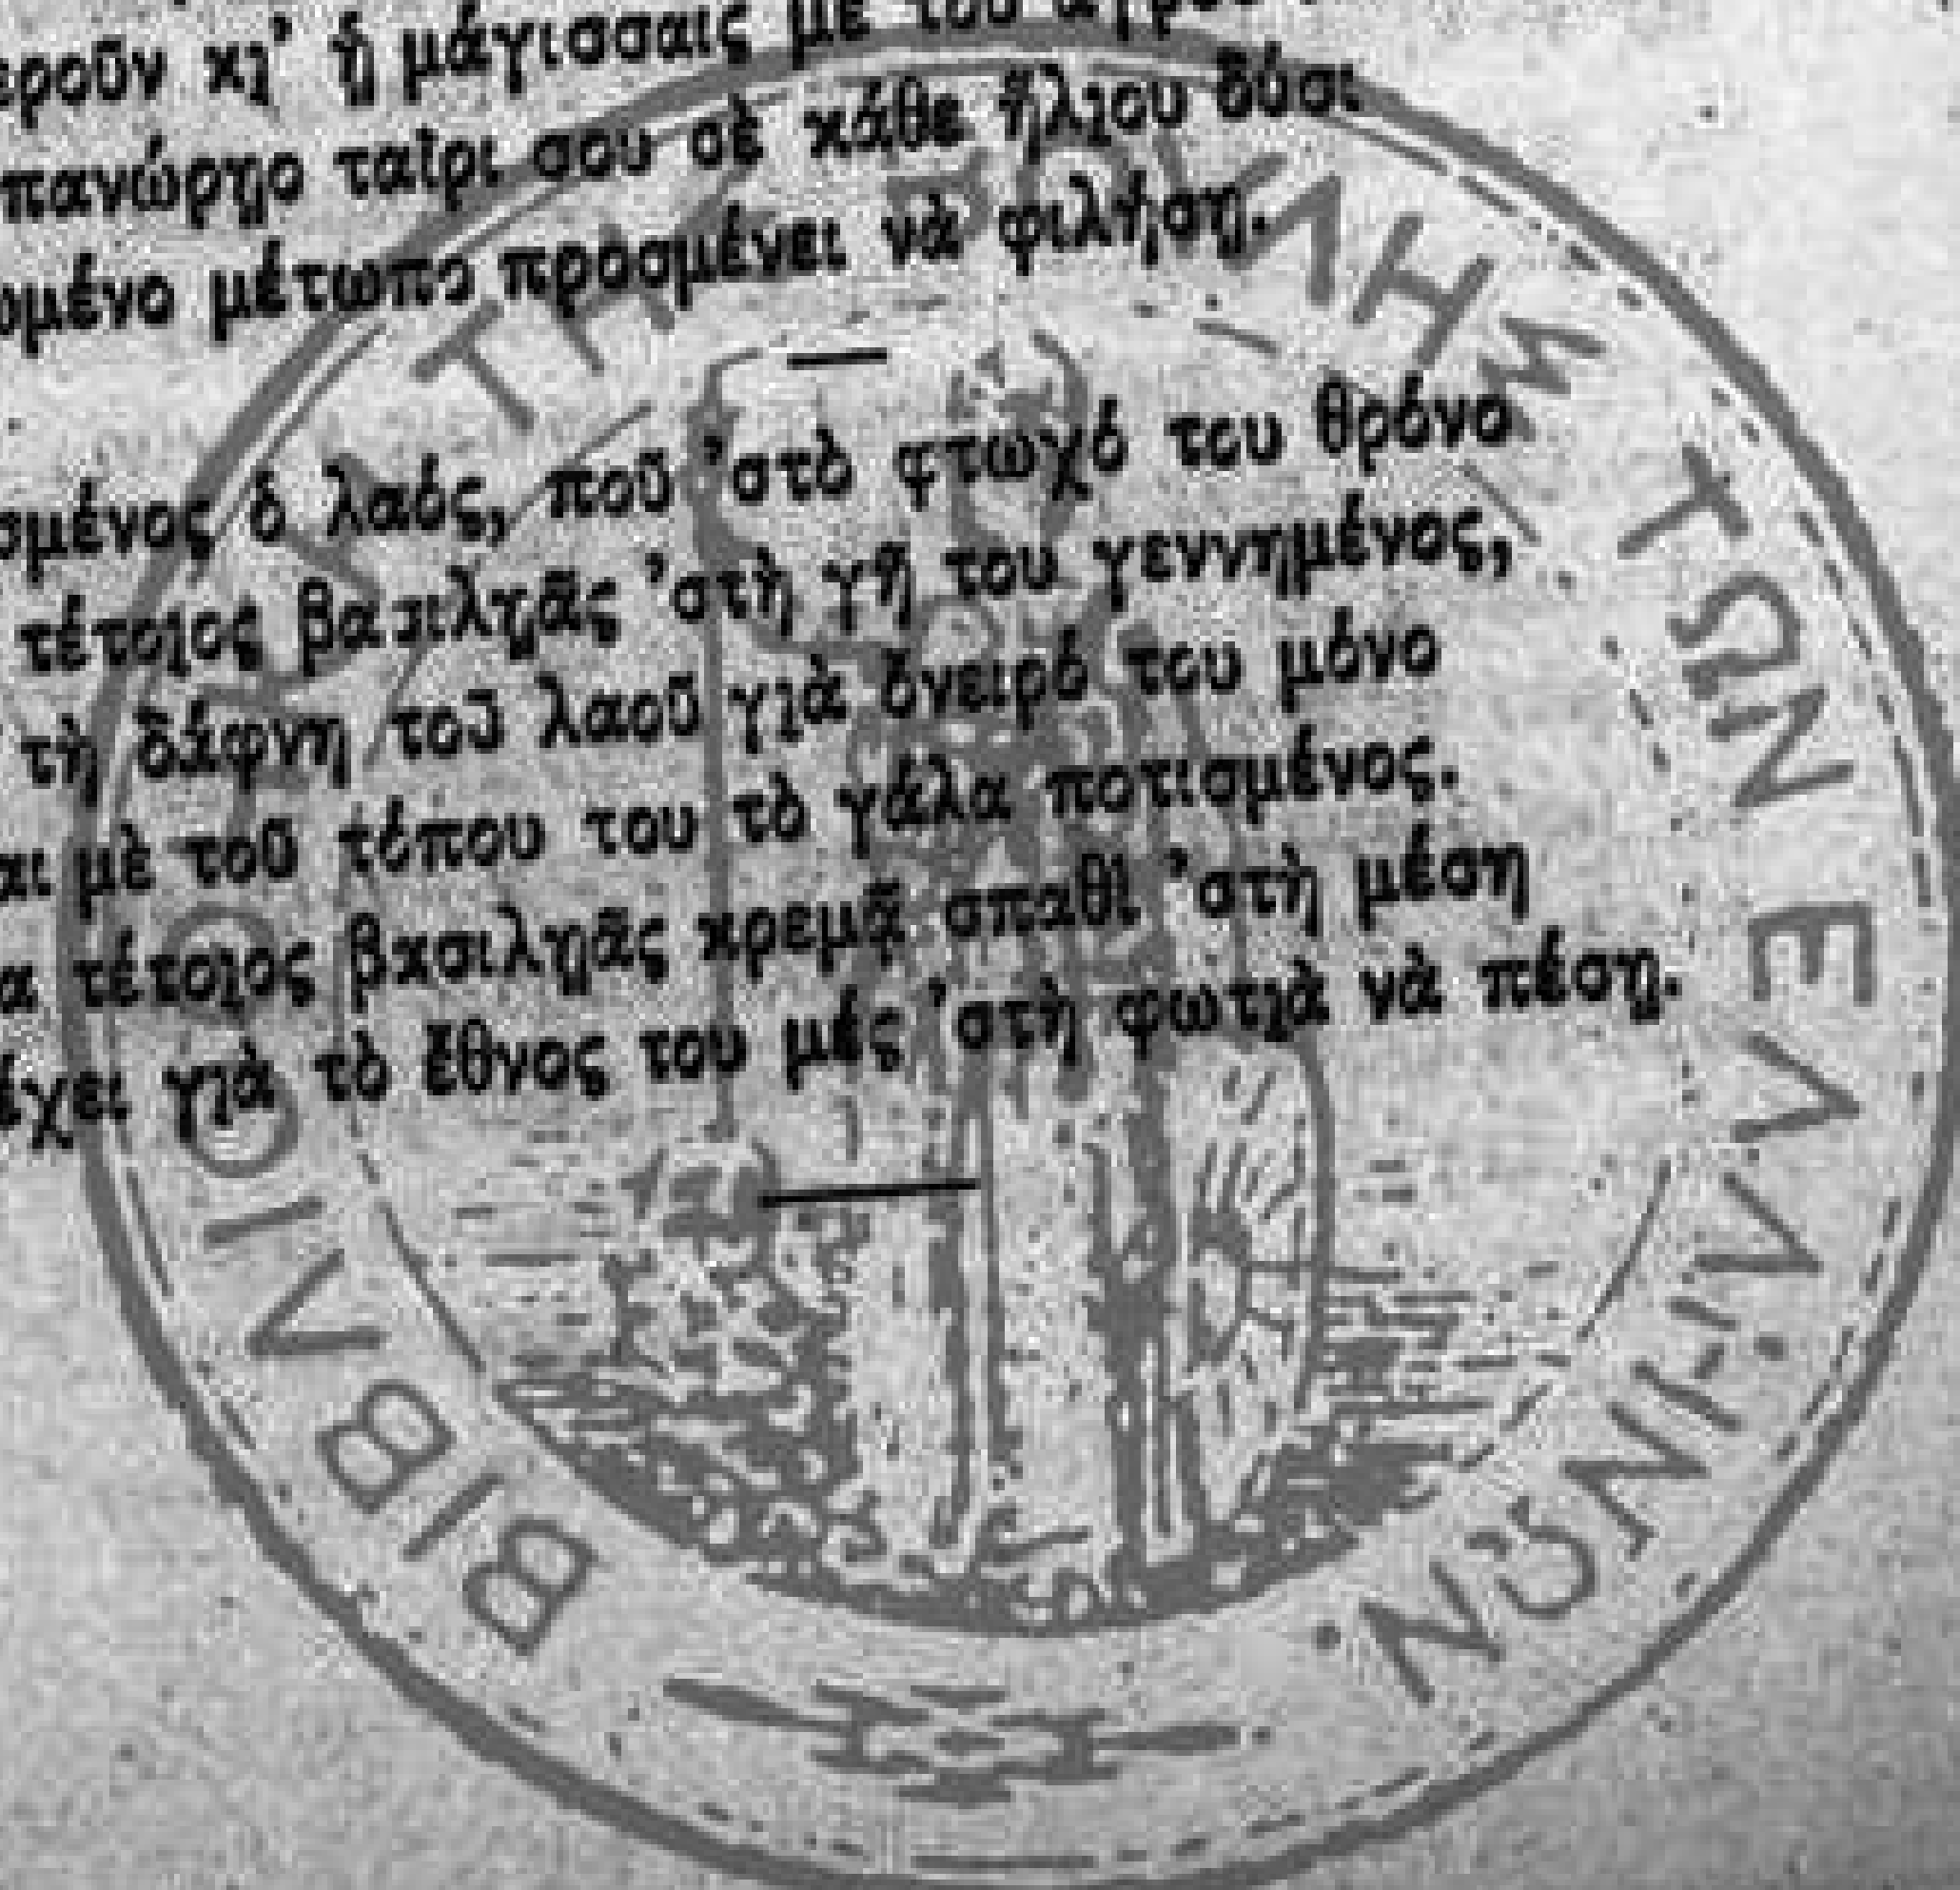 εροῦν κι' ᾑ μάγισσαις μὲ τοῦ
πανώρῃο ταῖρι σου σὲ κάθε ἥλιου δύσι
ομένο μέτωπο προσμένει νὰ φιλήσῃ.
σμένος ὁ λαός, ποῦ 'στὸ φτωχό του θρόνο
τέτοιος βασιλῃᾶς 'στὴ γῆ του γεννημένος,
τὴ δάφνη τοῦ λαοῦ γιὰ ὄνειρό του μόνο
αι μὲ τοῦ τόπου του τὸ γάλα ποτισμένος.
α τέτοιος βασιλῃᾶς κρεμᾷ σπαθὶ 'στὴ μέση
έχει γιὰ τὸ ἔθνος του μές 'στὴ φωτιὰ νὰ πέσῃ.
ΒΙΒΛΙΟΘΗΚΗ ΤΗΣ ΒΟΥΛΗΣ ΤΩΝ ΕΛΛΗΝΩΝ